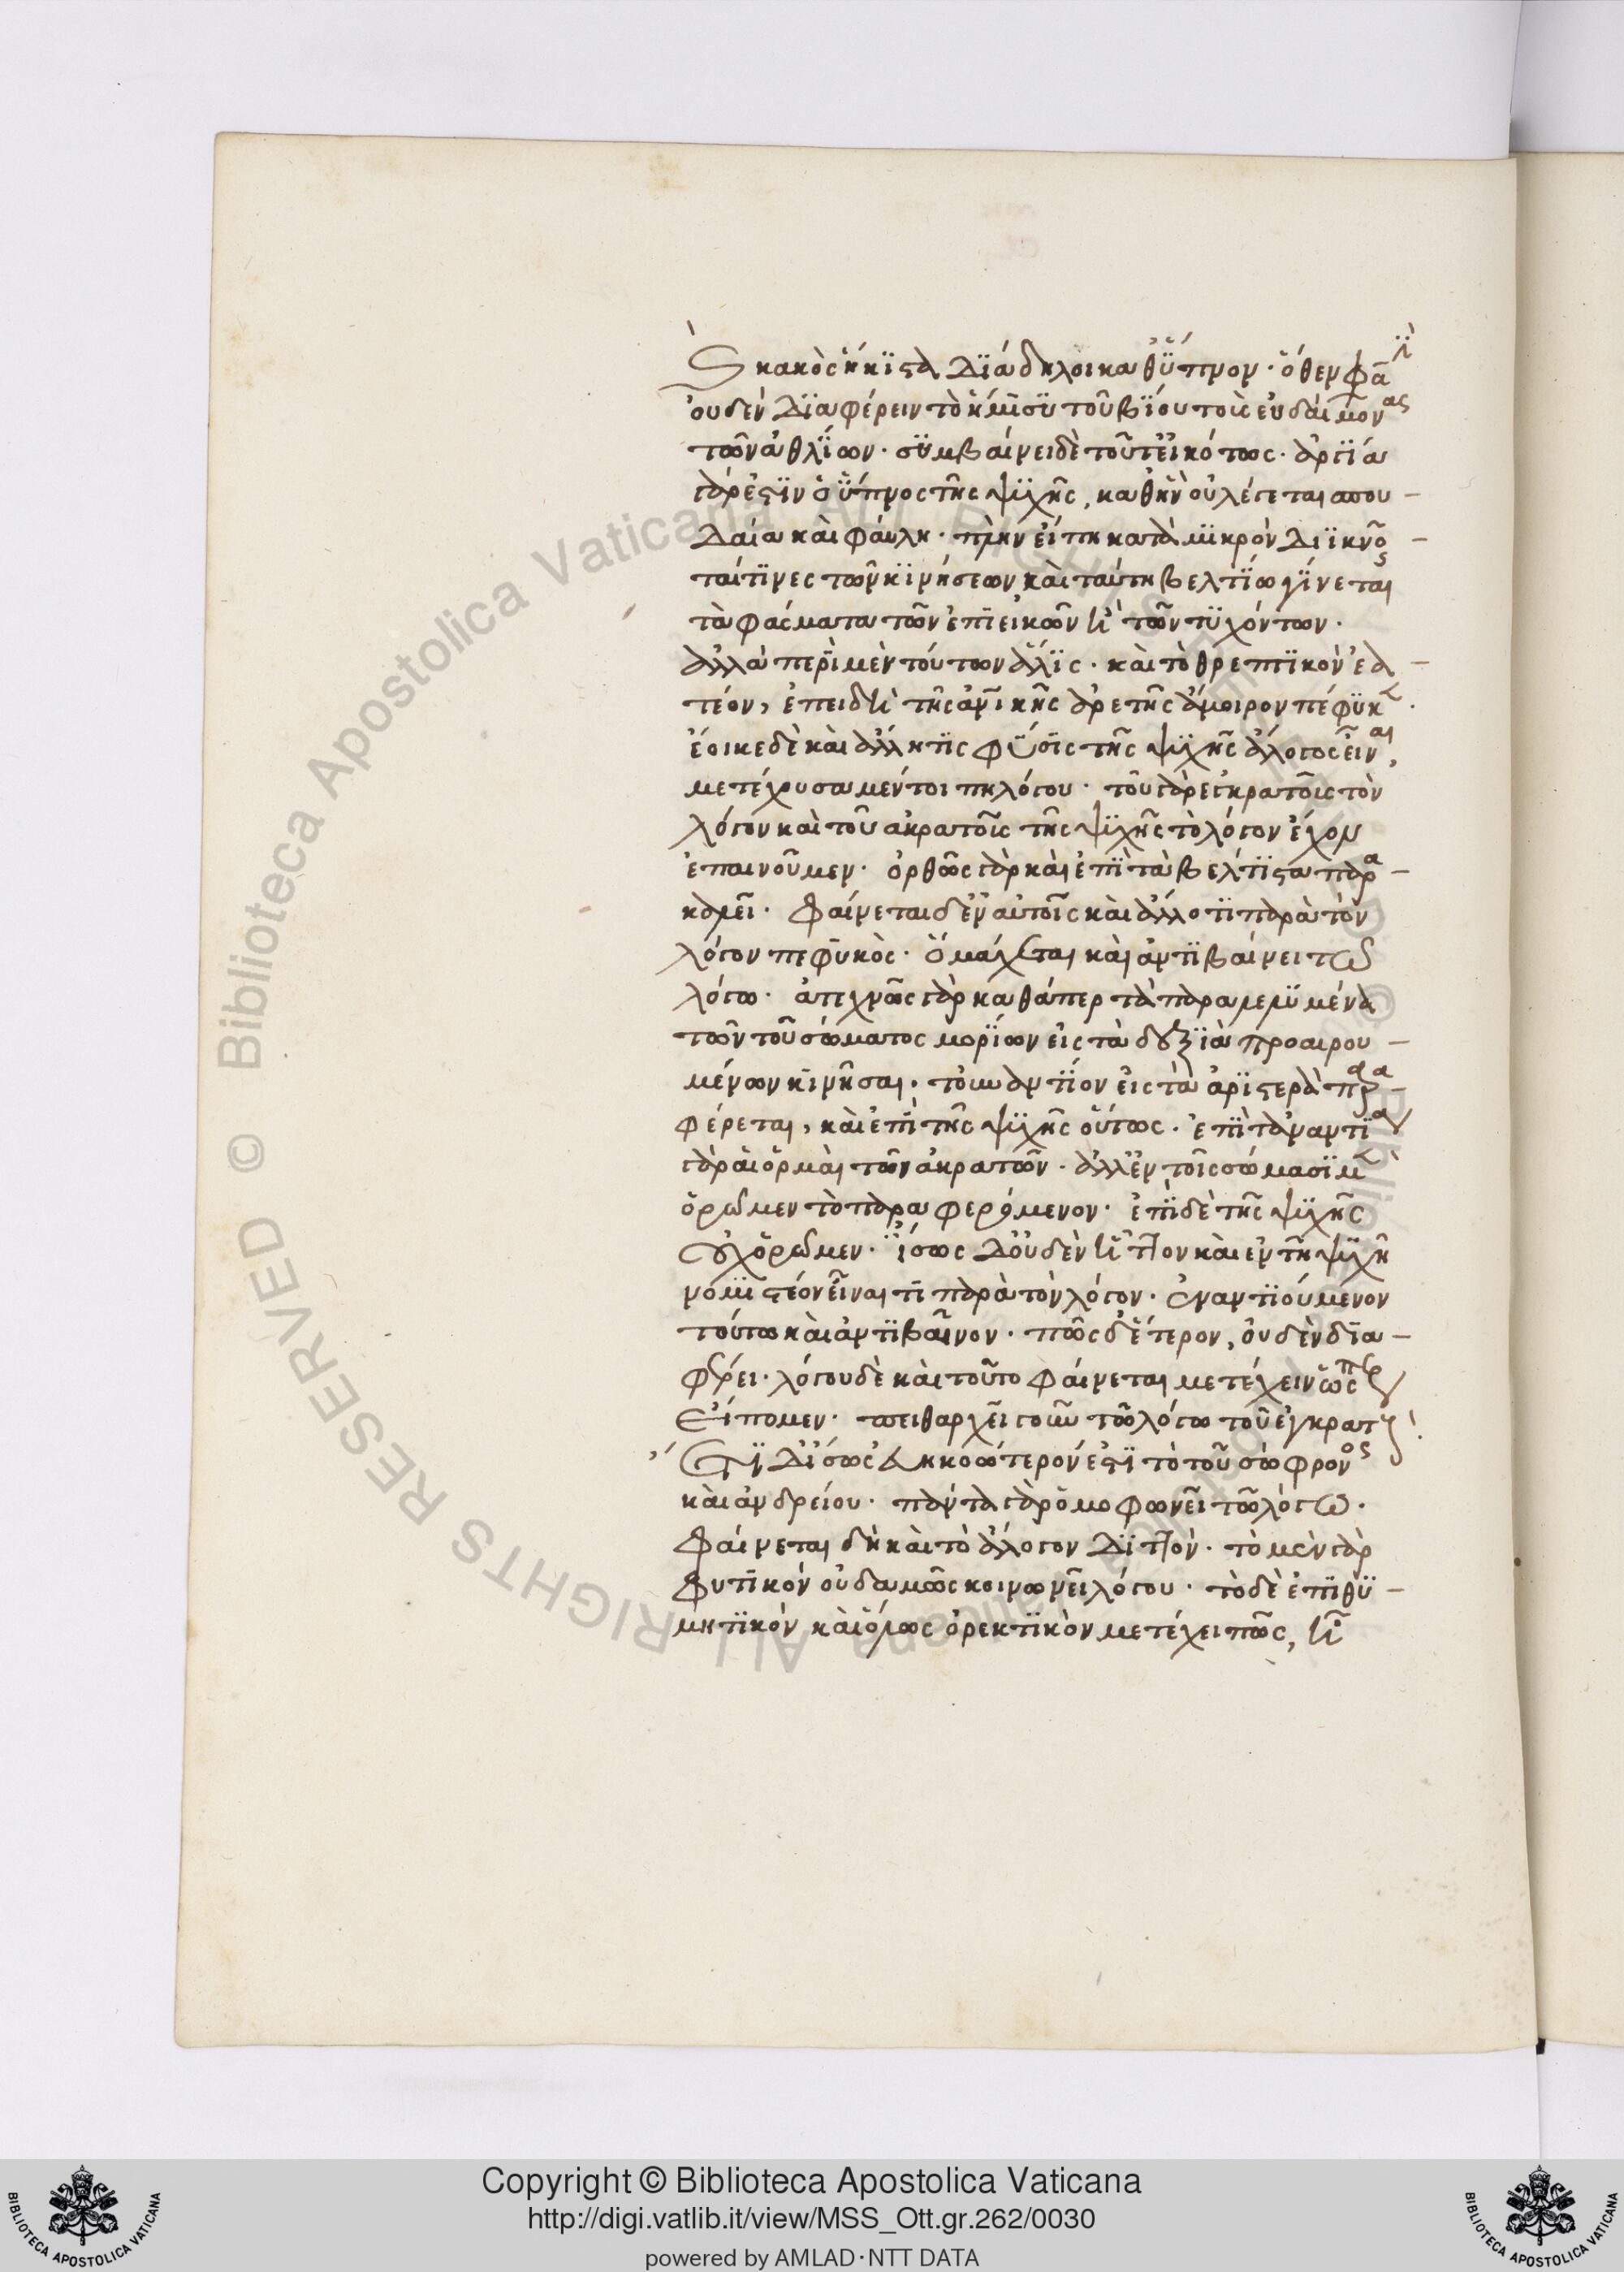 καὶ κακὸς ἥκιστα διάδηλοι καθ' ὕπνον· ὅθεν φασὶ
οὐδὲν διαφέρειν τὸ ἥμισυ τοῦ βίου τοὺς εὐδαίμονας
τῶν ἀθλίων· συμβαίνει δὲ τοῦτ' εἰκότως· ἀργία
γάρ ἐστιν ὁ ὕπνος τῆς ψυχῆς, καθ' ἣν οὐ λέγεται σπου-
δαία καὶ φαύλη· πλὴν εἴ πη κατὰ μικρὸν διικνοῦν-
ταί τινες τῶν κινήσεων, καὶ ταύτη βελτίω γίνεται
τὰ φάσματα τῶν ἐπιεικῶν ἢ τῶν τυχόντων·
ἀλλὰ περὶ μὲν τούτων ἅλις· καὶ τὸ θρεπτικὸν ἐα-
τέον, ἐπειδὴ τῆς ἀνθρωπικῆς ἀρετῆς ἄμοιρον πέφυκεν·
ἔοικε δὲ καὶ ἄλλη τις φύσις τῆς ψυχῆς ἄλογος εἶναι,
μετέχουσα μέντοι πη λόγου· τοῦ γὰρ ἐγκρατοῦς τὸν
λόγον καὶ τοῦ ἀκρατοῦς τῆς ψυχῆς τὸ λόγον ἔχον
ἐπαινοῦμεν· ὀρθῶς γὰρ καὶ ἐπὶ τὰ βέλτιστα παρα-
καλεῖ· φαίνεται δ' ἐν αὐτοῖς καὶ ἄλλο τι παρὰ τὸν
λόγον πεφυκὸς· ὃ μάχεται καὶ ἀντιβαίνει τῶ
λόγω· ἀτεχνῶς γὰρ καθάπερ τὰ παραλελυμένα
τῶν τοῦ σώματος μορίων εἰς τὰ δεξιὰ προαιρου-
μένων κινῆσαι· τοὐναντίον εἰς τὰ ἀριστερὰ παρα-
φέρεται, καὶ ἐπὶ τῆς ψυχῆς οὕτως· ἐπὶ τἀναντία
γὰρ αἱ ὁρμαὶ τῶν ἀκρατῶν· ἀλλ' ἐν τοῖς σώμασι μὲν
ὁρῶμεν τὸ παραφερόμενον· ἐπὶ δὲ τῆς ψυχῆς
οὐχ ὁρῶμεν· ἴσως δ' οὐδὲν ἧττον καὶ ἐν τῆ ψυχῆ
νομιστέον εἶναι τι παρὰ τὸν λόγον· ἐναντιούμενον
τούτω καὶ ἀντιβαῖνον· πῶς δ' ἕτερον, οὐδὲν δια-
φέρει· λόγου δὲ καὶ τοῦτο φαίνεται μετέχειν ὥσπερ
εἴπομεν· πειθαρχεῖ γοῦν τῶ λόγω τοῦ ἐγκρατοῦς·
ἔτι δ' ἴσως εὐηκοώτερόν ἐστι τὸ τοῦ σώφρονος
καὶ ἀνδρείου· πάντα γὰρ ὁμοφωνεῖ τῶ λόγω·
φαίνεται δὴ καὶ τὸ ἄλογον διττόν· τὸ μὲν γὰρ
φυτικὸν οὐδαμῶς κοινωνεῖ λόγου· τὸ δὲ ἐπιθυ-
μητικὸν καὶ ὅλως ὀρεκτικὸν μετέχει πῶς, ἧ
Copyright © Biblioteca Apostolica Vaticana
http://digi.vatlib.it/view/MSS_Ott.gr.262/0030
powered by AMLAD·NTT DATA
BIBLIOTECA APOSTOLICA VATICANA
BIBLIOTECA APOSTOLICA VATICANA
© Biblioteca Apostolica Vaticana ALL RIGHTS RESERVED